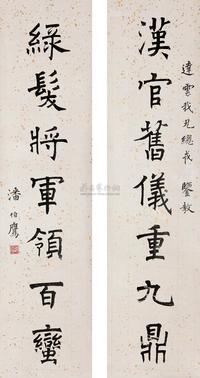 達雲我兄總戎 鑒教
漢官舊儀重九鼎
綠髮將軍領百蠻
潘伯鷹